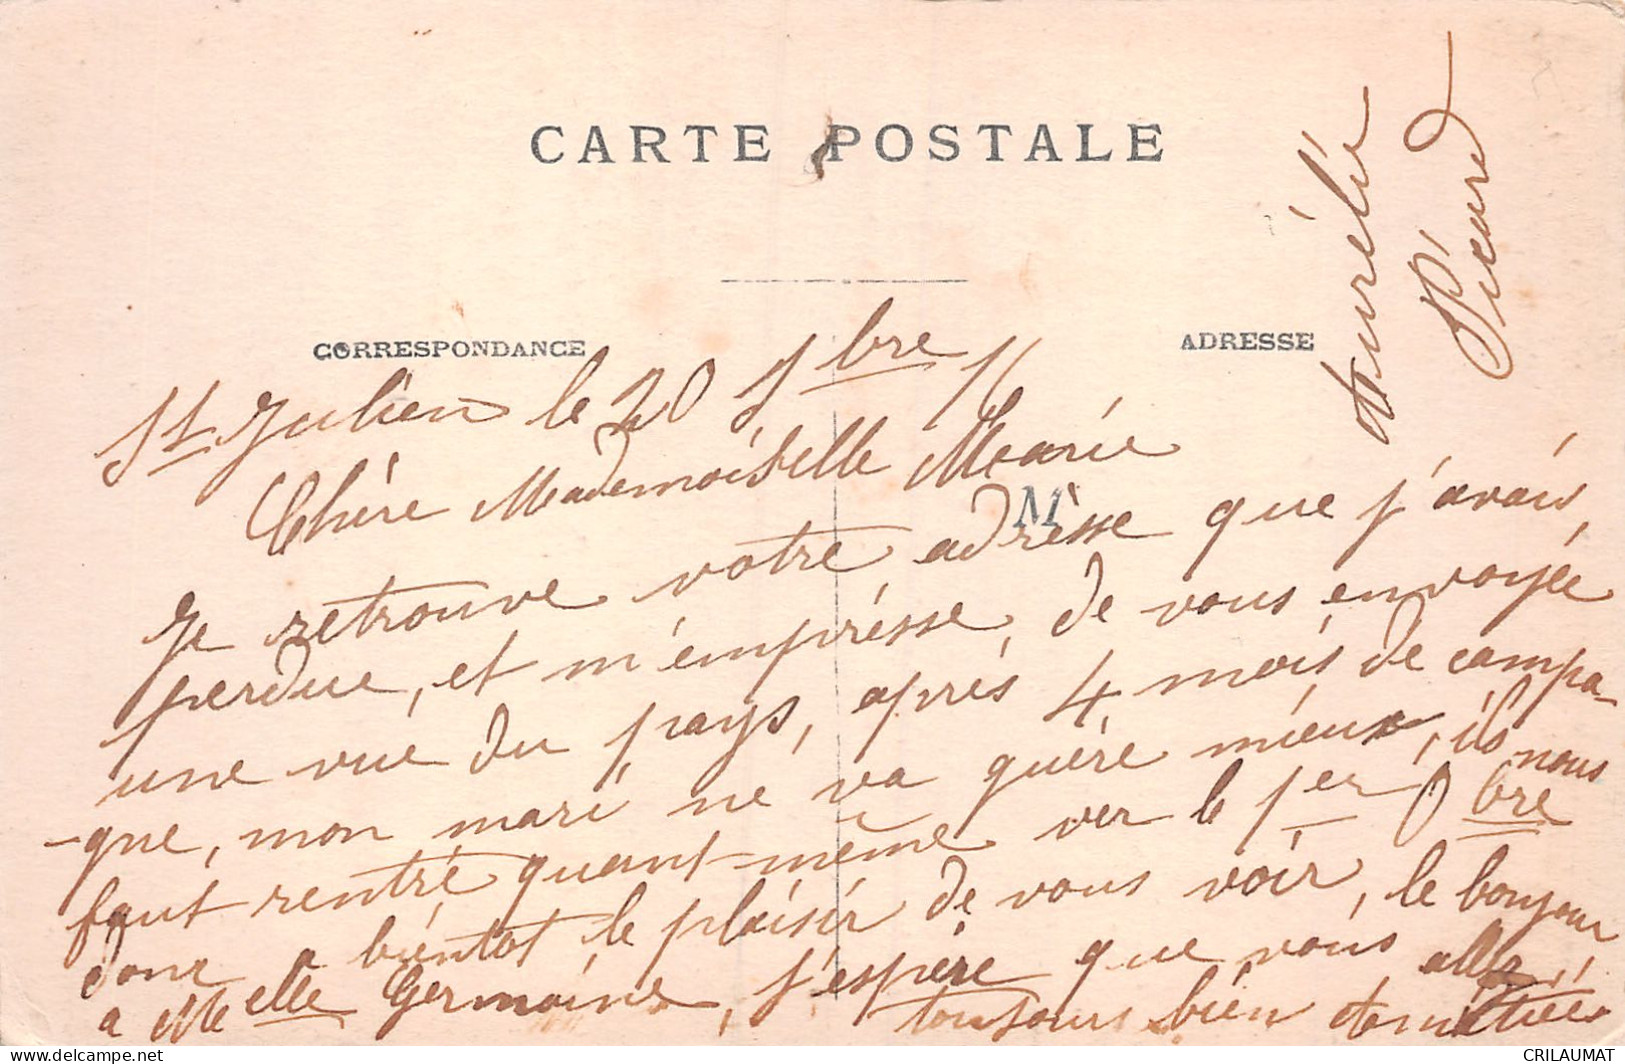 CARTE POSTALE
CORRESPONDANCE
ADRESSE
St Julien le 20 7bre 16
Chère Mademoiselle Marie
M
Je retrouve votre adrèsse que j'avais,
perdue, et m'emprésse, de vous envoyée
une vue du pays, après 4 mois de campa-
-gne, mon mari ne va guère mieux, ils nous
faut rentré quant-même ver le 1er 8bre
donc a bientot le plaisir de vous voir, le bonjour
a Melle Germaine, j'espère que vous allez
toujours bien Amitiées
Aurélie
Picard
CRILAUMAT